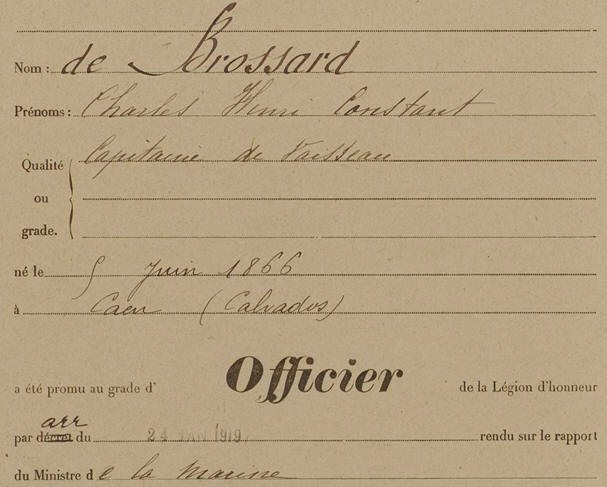 Nom : de Brossard
Prénoms : Charles Henri Constant
Qualité ou grade. Capitaine de Vaisseau
né le 5 Juin 1866
à Caen (Calvados)
a été promu au grade d' Officier de la Légion d'honneur
par arr du 24 JAN 1919 rendu sur le rapport
du Ministre de la Marine